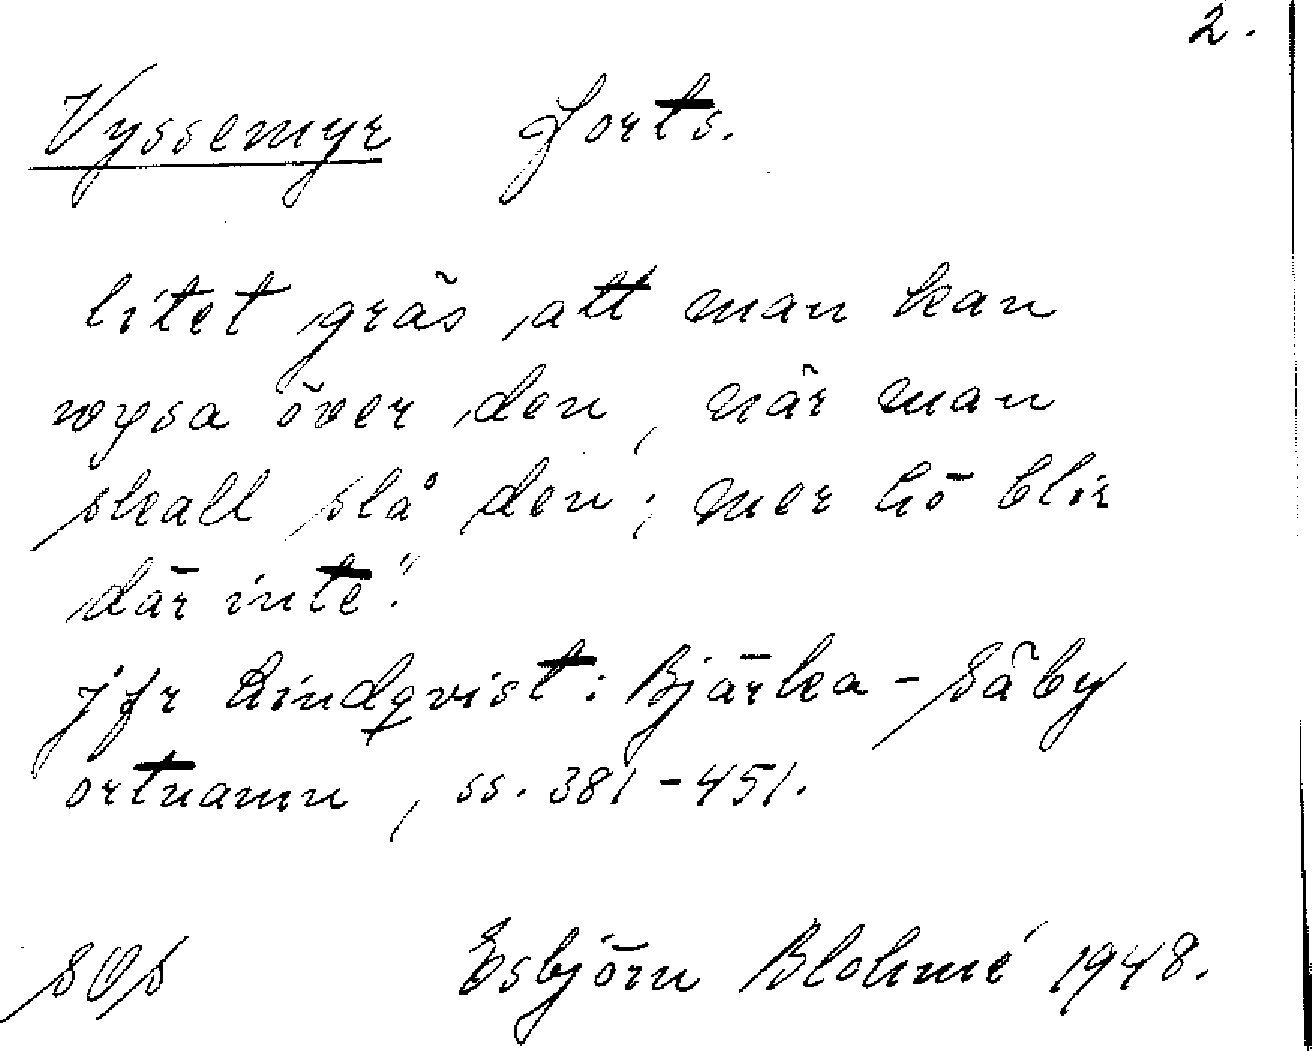 2.
Vyssemyr forts.
litet gräs, att man kan
vysa över den, när man
skall slå den; mer hö blir
där inte."
jfr Lindqvist: Bjärka-Säby
ortnamn, ss. 381-451.
SOS Esbjörn Blohmé 1948.